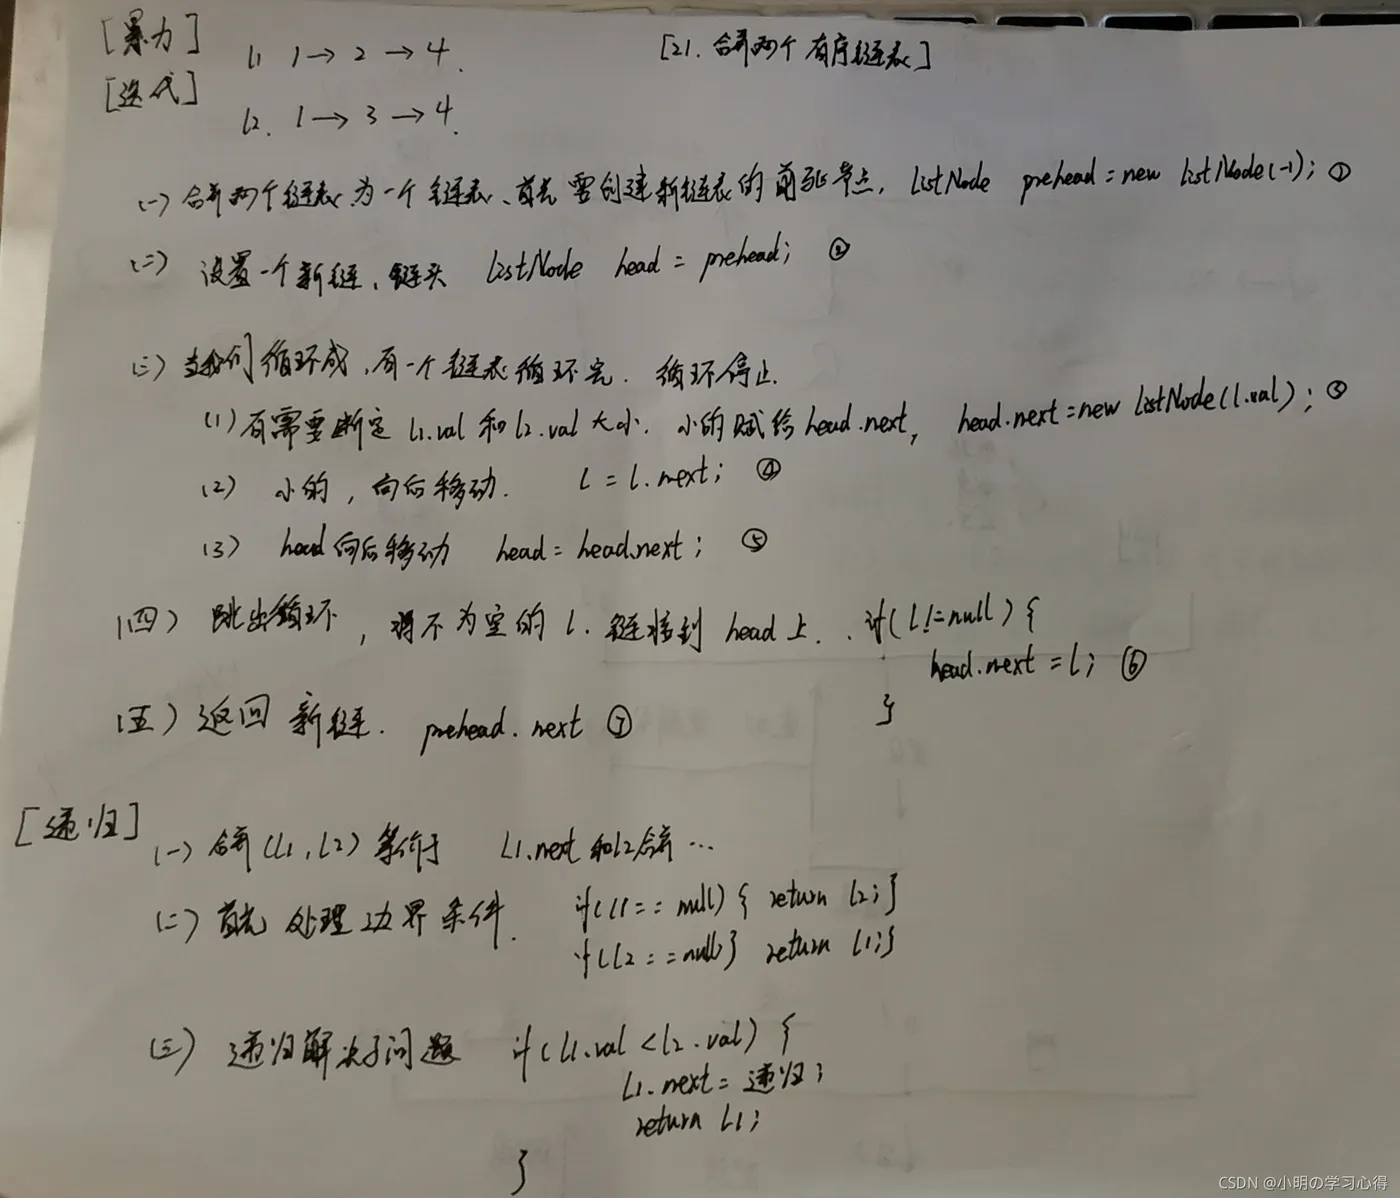 [暴力]
[迭代]
[21. 合并两个有序链表]
l1 1→2→4.
l2. 1→3→4.
(一) 合并两个链表为一个链表、首先需创建新链表的前驱节点, ListNode prehead = new ListNode(-1); ①
(二) 设置一个新链、链头 ListNode head = prehead; ②
(三) 当我们循环成,有一个链表循环完. 循环停止.
(1) 有需要断定 l1.val 和 l2.val 大小. 小的赋给 head.next, head.next = new ListNode(l.val); ③
(2) 小的, 向后移动. l = l.next; ④
(3) head向后移动 head = head.next; ⑤
(四) 跳出循环, 将不为空的 l. 链接到 head 上. if(l!=null) {
head.next = l; ⑥
}
(五) 返回新链. prehead.next ⑦
[递归]
(一) 合并(l1, l2) 等价于 l1.next 和 l2 合并 …
(二) 首先处理边界条件. if(l1 == null) { return l2; }
if(l2 == null} return l1;}
(三) 递归解决子问题 if(l1.val < l2.val) {
l1.next = 递归;
return l1;
}
CSDN @小明の学习心得